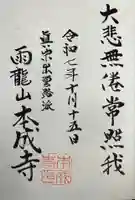 大悲無倦常照我
令和七年十月十五日
真宗木辺派
雨龍山本成寺